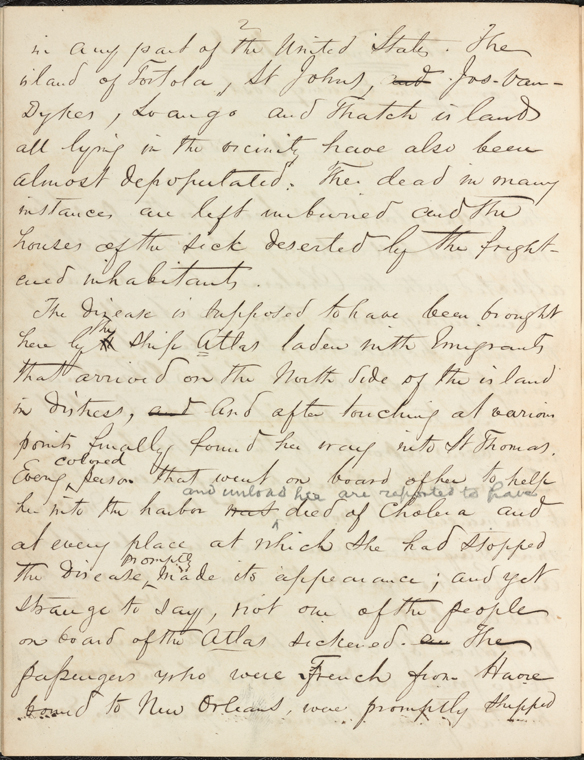 2
in any part of the United States. The
island of Tortola, St Johns, and Jos-Van-
Dykes, Loango and Thatch islands
all lying in the vicinity have also been
almost depopulated. The dead in many
instances are left unburied and the
houses of the sick deserted by the fright-
ened inhabitants.
The disease is supposed to have been brought
the
here by Ship Atlas laden with Emigrants
that arrived on the North Side of the island
in distress, and And after touching at various
points finally found her way into St Thomas.
colored
Every person that went on board of her to help
and unload her are reported to have
her into the harbor died of Cholera and
at every place at which she had stopped
promptly
the disease made its appearance; and yet
strange to say, not one of the people
on board of the Atlas sickened. The
passengers who were French from Havre
bound to New Orleans, were promptly shipped